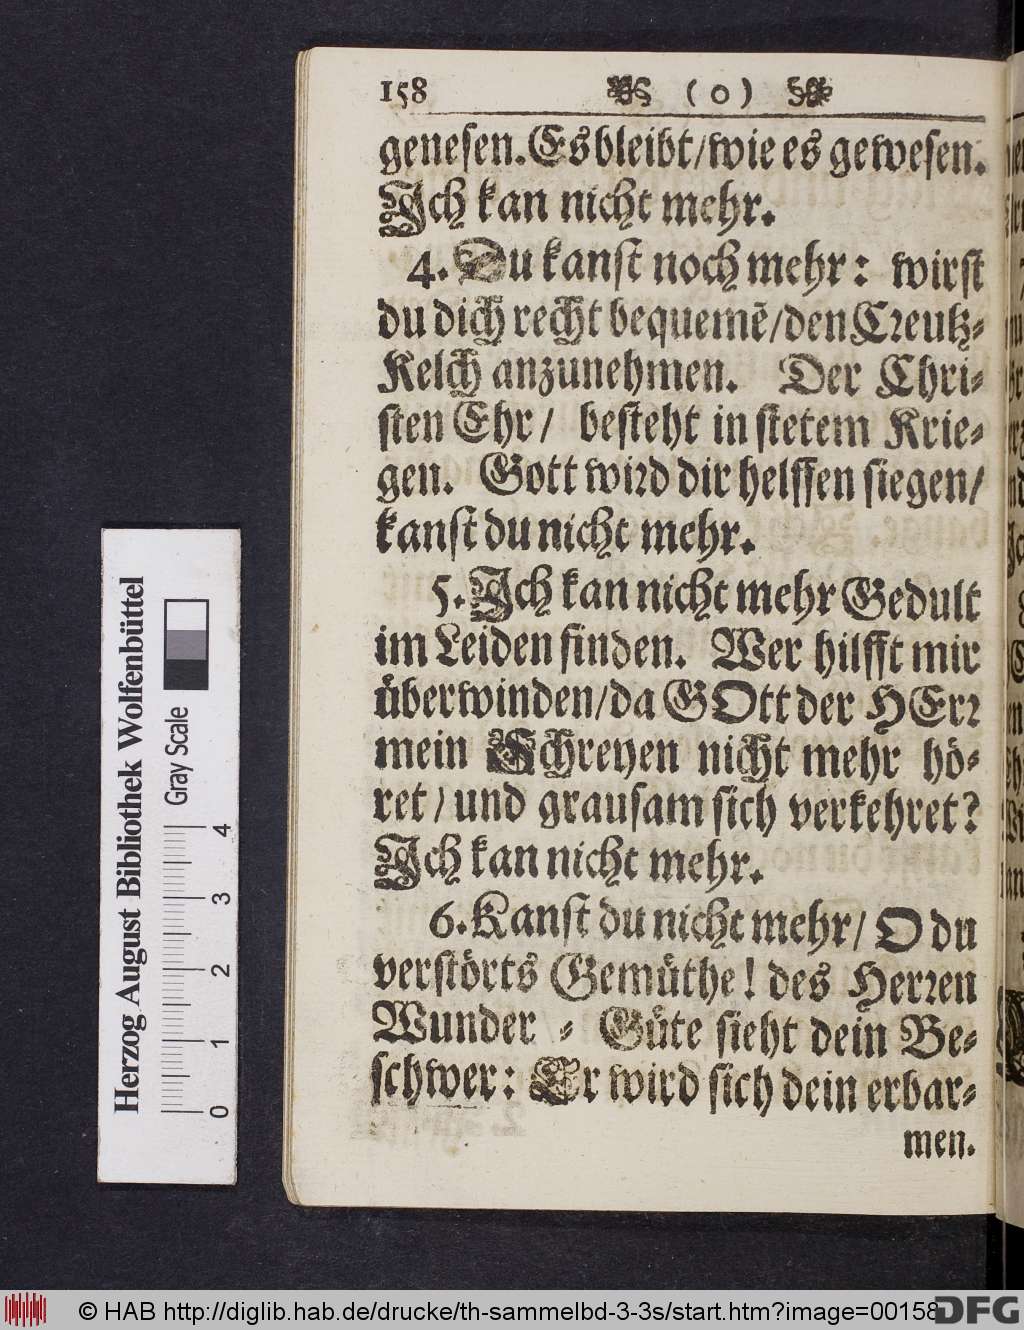 158 ( o )
genesen. Es bleibt/wie es gewesen.
Ich kan nicht mehr.
4. Du kanst noch mehr: wirst
du dich recht bequemẽ/den Creutz-
Kelch anzunehmen. Der Chri-
sten Ehr/ besteht in stetem Krie-
gen. Gott wird dir helffen siegen/
kanst du nicht mehr.
5. Ich kan nicht mehr Gedult
im Leiden finden. Wer hilfft mir
überwinden/da GOtt der HErr
mein Schreyen nicht mehr hö-
ret/ und grausam sich verkehret?
Ich kan nicht mehr.
6. Kanst du nicht mehr/ O du
verstörts Gemüthe! des Herren
Wunder - Güte sieht dein Be-
schwer: Er wird sich dein erbar-
men.
Herzog August Bibliothek Wolfenbüttel
Gray Scale
0 1 2 3 4
© HAB http://diglib.hab.de/drucke/th-sammelbd-3-3s/start.htm?image=00158
DFG